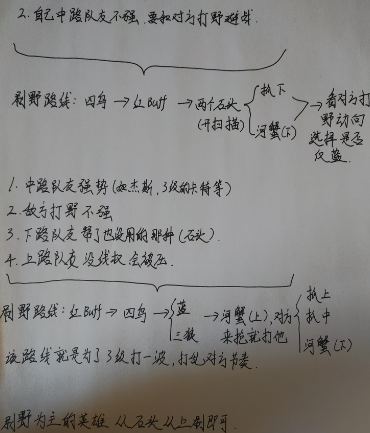 2. 自己中路队友不强,要和对方打野避战.
刷野路线: 四鸟 → 红Buff → 两个石头 (开扫描) { 抓下 河蟹(下) → 看对方打野动向 选择是否 反蓝.
1. 中路队友强势 (如杰斯, 3级的卡特等)
2. 敌方打野不强
3. 下路队友帮了也没用的那种 (石头).
4. 上路队友没线权会被压.
刷野路线: 红Buff → 四鸟 → { 蓝 三狼 → 河蟹(上), 对方来抢就打他 { 抓上 抓中 河蟹(下)
该路线就是为了3级打一波, 打乱对方节奏.
刷野为主的英雄 从石头从上刷即可.